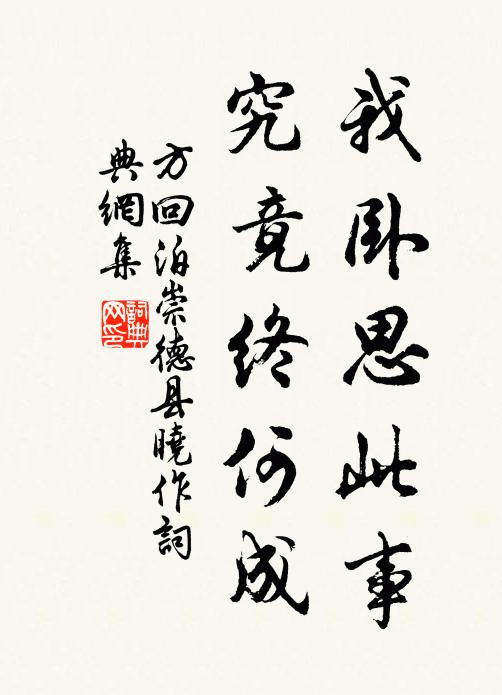 我卧思此事
究竟終何成
方回泊崇德县曉作詞
典網集
詞典
网印